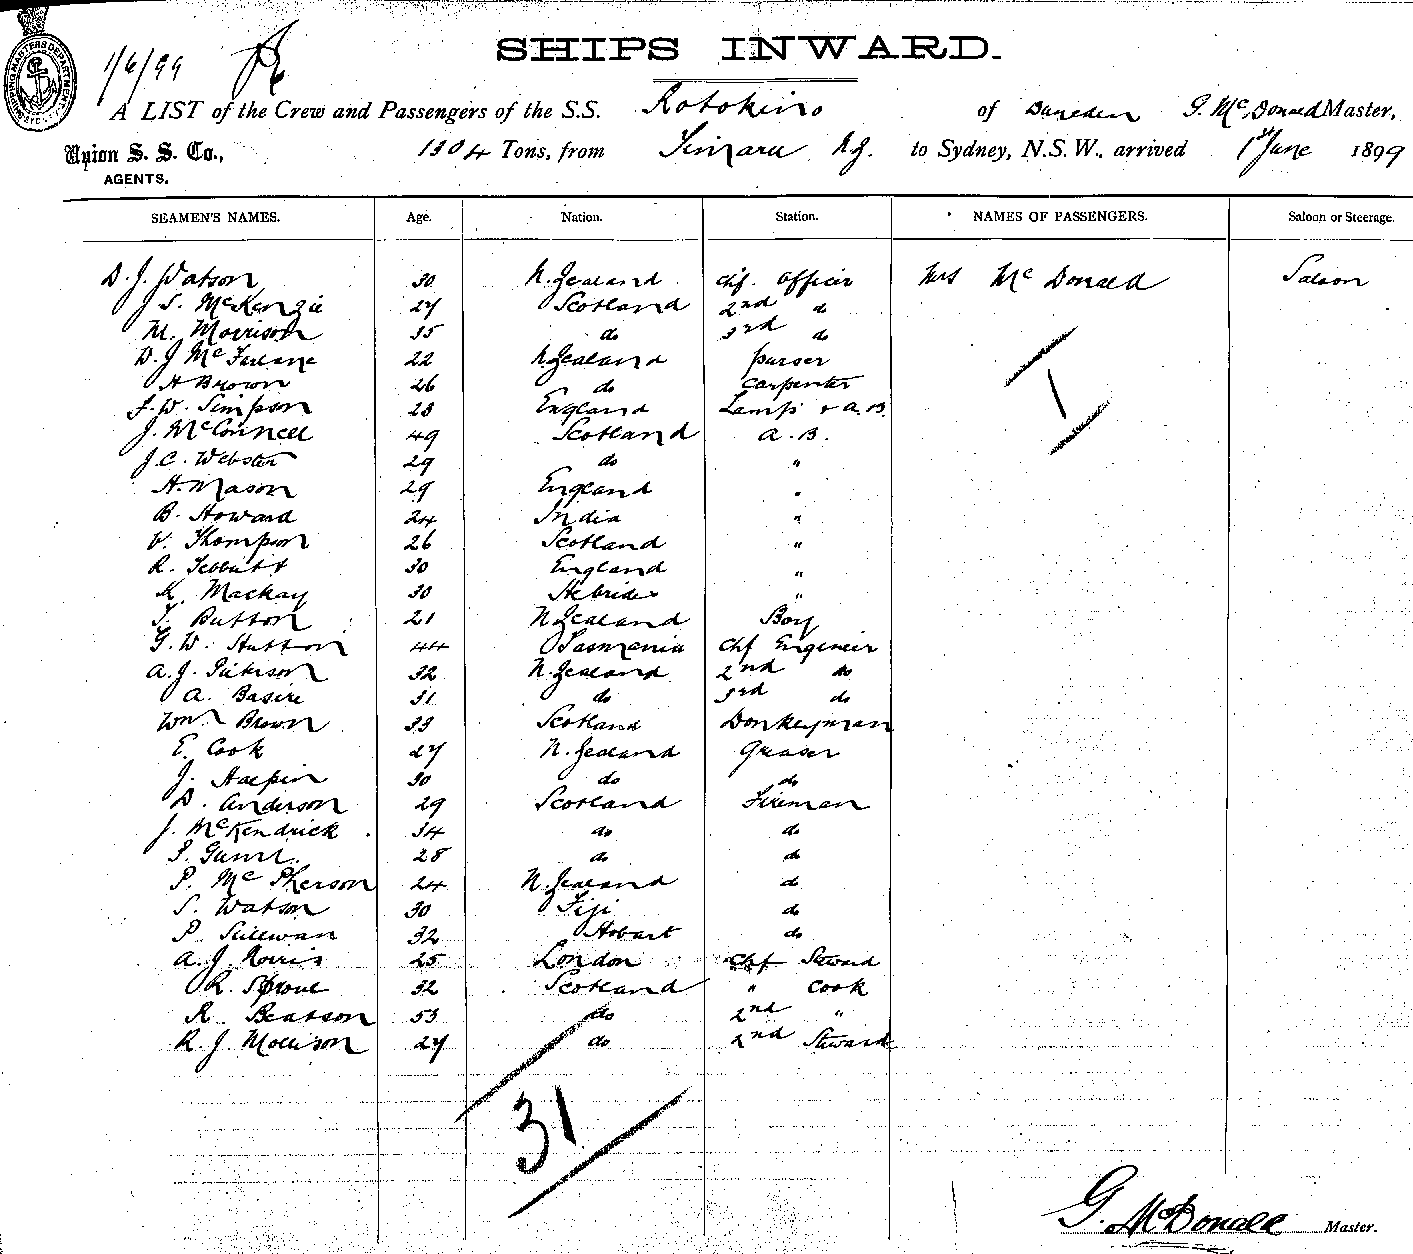 SHIPS INWARD.
1/6/99
A LIST of the Crew and Passengers of the S.S. Rotokino of Dunedin G. McDonald Master,
Union S. S. Co., 1304 Tons, from Timaru N.Z. to Sydney, N.S.W., arrived 1st June 1899
AGENTS.
SEAMEN'S NAMES. Age. Nation. Station. NAMES OF PASSENGERS. Saloon or Steerage.
D. J. Watson 30 N. Zealand Chf. Officer Mrs McDonald Saloon
J. S. McKenzie 27 Scotland 2nd do
M. Morrison 35 do 3rd do
D. J McFarlane 22 N. Zealand purser
H Brown 26 do Carpenter
J. W. Simpson 28 England Lamps & A.B.
J. McConnell 49 Scotland A. B.
J. C. Webster 29 do "
H. Mason 29 England "
B. Howard 24 India "
V. Thompson 26 Scotland "
R. Tebbutt 30 England "
K. Mackay 30 Hebrides "
T. Button 21 N Zealand Boy
G. W. Hutton 44 Tasmania Chf Engineer
A. J. Dickison 32 N. Zealand 2nd do
A. Basire 31 do 3rd do
Wm Brown 33 Scotland Donkeyman
E. Cook 27 N. Zealand Greaser
J. Halpin 30 do do
D. Anderson 29 Scotland Fireman
J. McKendrick 34 do do
P. Gunn 28 do do
P. McPherson 24 N. Zealand do
S. Watson 30 Fiji do
P. Sullivan 32 Hobart do
A. J. Norris 25 London Chf Steward
R. Sproul 32 Scotland " Cook
R. Beatson 53 do 2nd "
R. J. Mollison 27 do 2nd Steward
1
31
G. McDonald Master.